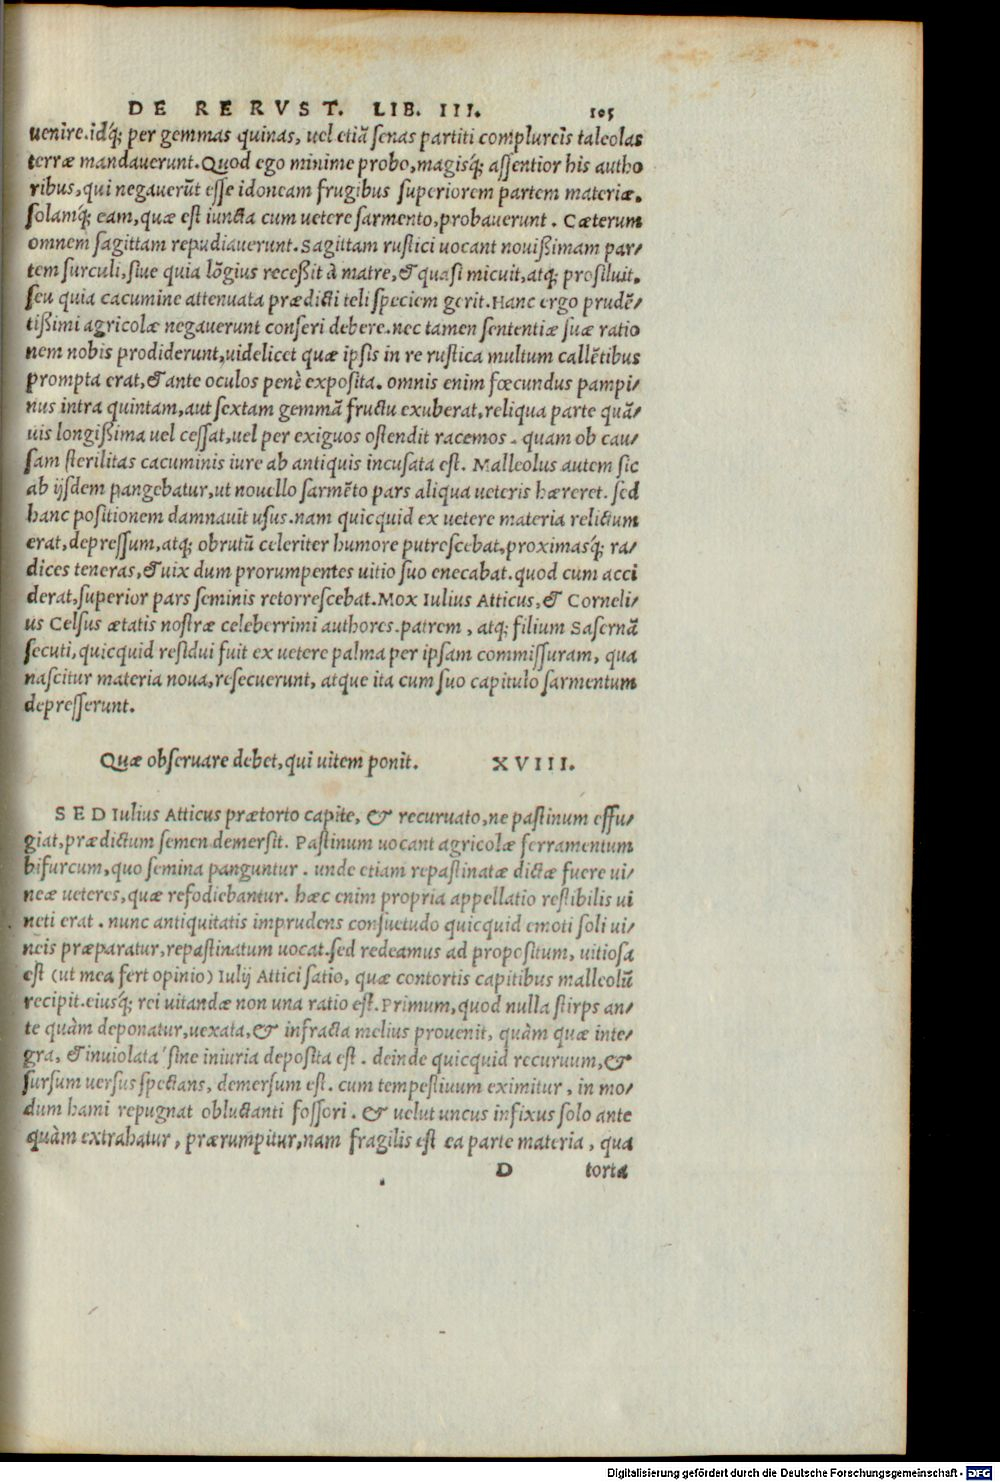 DE RE RVST. LIB. III. 105
uenire.idq́; per gemmas quinas, uel etiã senas partiti complureis taleolas
terræ mandauerunt.Quod ego minime probo,magisq́; assentior his autho
ribus,qui negauerũt esse idoneam frugibus superiorem partem materiæ.
solamq́; eam,quæ est iuncta cum uetere sarmento,probauerunt. Cæterum
omnem sagittam repudiauerunt.Sagittam rustici uocant nouißimam par/
tem surculi,siue quia lõgius receßit à matre,& quasi micuit,atq; prosiluit.
seu quia cacumine attenuata prædicti teli speciem gerit.Hanc ergo prudẽ/
tißimi agricolæ negauerunt conseri debere.nec tamen sententiæ suæ ratio
nem nobis prodiderunt,uidelicet quæ ipsis in re rustica multum callẽtibus
prompta erat,& ante oculos penè exposita. omnis enim fœcundus pampi/
nus intra quintam,aut sextam gemmã fructu exuberat,reliqua parte quã/
uis longißima uel cessat,uel per exiguos ostendit racemos. quam ob cau/
sam sterilitas cacuminis iure ab antiquis incusata est. Malleolus autem sic
ab ijsdem pangebatur,ut nouello sarmẽto pars aliqua ueteris hæreret. sed
hanc positionem damnauit usus.nam quicquid ex uetere materia relictum
erat,depressum,atq; obrutũ celeriter humore putrescebat,proximasq́; ra/
dices teneras,& uix dum prorumpentes uitio suo enecabat.quod cum acci
derat,superior pars seminis retorrescebat.Mox Iulius Atticus,& Corneli/
us Celsus ætatis nostræ celeberrimi authores.patrem, atq; filium Sasernã
secuti,quicquid residui fuit ex uetere palma per ipsam commissuram, qua
nascitur materia noua,resecuerunt, atque ita cum suo capitulo sarmentum
depresserunt.
Quæ obseruare debet,qui uitem ponit. XVIII.
SED Iulius Atticus prætorto capite, & recuruato,ne pastinum effu/
giat,prædictum semen demersit. Pastinum uocant agricolæ ferramentum
bifurcum,quo semina panguntur. unde etiam repastinatæ dictæ fuere ui/
neæ ueteres,quæ refodiebantur. hæc enim propria appellatio restibilis ui
neti erat. nunc antiquitatis imprudens consuetudo quicquid emoti soli ui/
neis præparatur,repastinatum uocat.sed redeamus ad propositum, uitiosa
est (ut mea fert opinio) Iulij Attici satio, quæ contortis capitibus malleolũ
recipit.eiusq́; rei uitandæ non una ratio est.Primum,quod nulla stirps an/
te quàm deponatur,uexata,& infracta melius prouenit, quàm quæ inte/
gra, & inuiolata sine iniuria deposita est. deinde quicquid recuruum,&
sursum uersus spectans, demersum est. cum tempestiuum eximitur, in mo/
dum hami repugnat obluctanti fossori. & uelut uncus infixus solo ante
quàm extrahatur, prærumpitur,nam fragilis est ea parte materia, qua
D torta
Digitalisierung gefördert durch die Deutsche Forschungsgemeinschaft - DFG